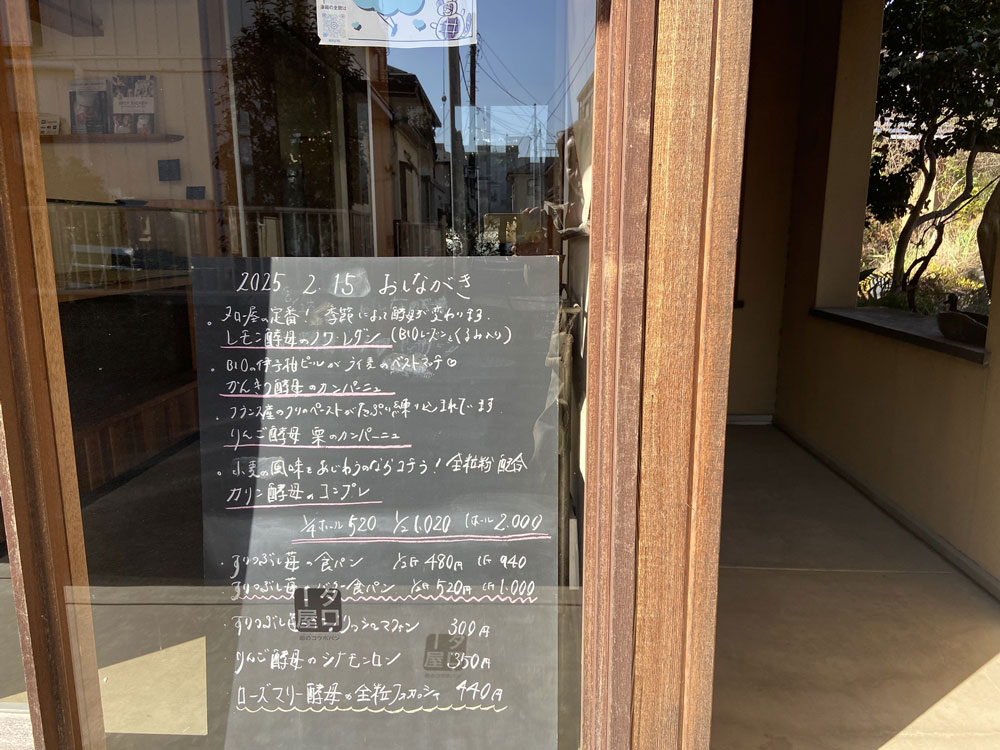 2025 2.15 おしながき
。タロー屋の定番！季節によって酵母が変わります．
レモン酵母のノワ・レザン（BIOレーズンとくるみ入り）
。BIOの伊予柑ピールがライ麦のベストマッチ♡
かんきつ酵母のカンパーニュ
・フランス産のクリのペーストがたっぷり練り込まれています
りんご酵母 栗のカンパーニュ
。小麦の風味をあじわうのならコチラ！全粒粉配合
カリン酵母のコンプレ
1/4ホール520 1/2 1,020 1ホール2,000
・すりつぶし苺の食パン 1/2斤480円 1斤940
・すりつぶし苺 バター食パン 1/2斤520円 1斤1,000
・すりつぶし リッシュマフィン 300円
・りんご酵母のシナモンロン 350円
・ローズマリー酵母の全粒フォカッチャ 440円
タロー屋
タロー屋